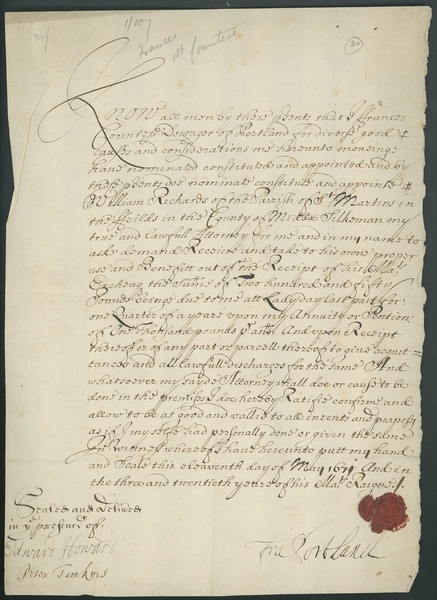 1/107
20
Frances
1st Countess
KNOW all men by these p'sents that I Frances
Countess Dowager of Portland for diverse good
causes and considerations me hereunto moveinge
have nominated constituted and appointed and by
these p'sents doe nominate constitute and appointe
William Richards of the Parish of St Martins in
the ffeilds in the County of Midd'x Silkeman my
true and lawfull Attorney for me and in my name to
aske demand Receive and take to his owne proper
use and Benefitt out of the Receipt of his Ma'ts
Excheqr the summe of Two hundred and fifty
Pounds beinge due to me att Ladyday last past for
one Quarter of a yeare upon my Annuity or Pention
of One Thousand pounds p' ann' And upon Receipt
thereof or of any part or parcell thereof to give acquit=
tances and all lawfull discharges for the same And
whatsoever my sayde Attorney shall doe or cause to be
done in the premises I doe hereby Ratifie confirme and
allow to be as good and vallid to all intents and purposes
as if I my selfe had personally done or given the same
In Witness whereof I have hereunto putt my hand
and Seale this eleaventh day of May 1671 And in
the three and twentieth yeare of his Ma'ts Raigne
Sealed and delivered
in ye presence of
Edward Howard
Peter Tomkins
Fra Portland